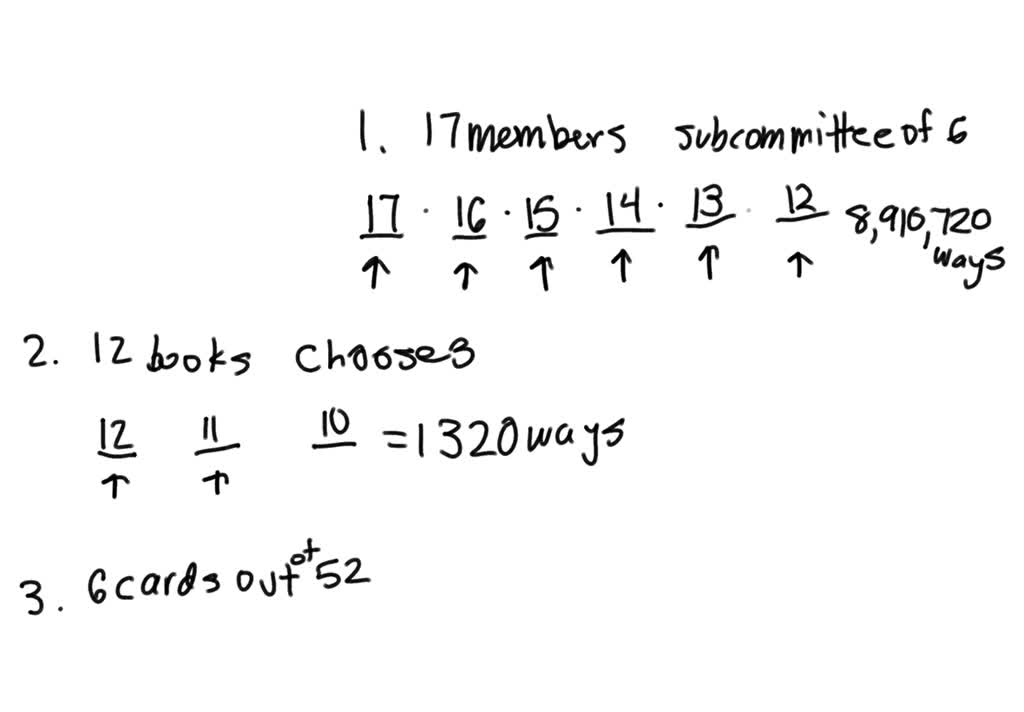 1. 17 members subcommittee of 6
17 · 16 · 15 · 14 · 13 · 12 8,910,720 ways
2. 12 books choose 3
12 11 10 = 1320 ways
3. 6 cards out of 52